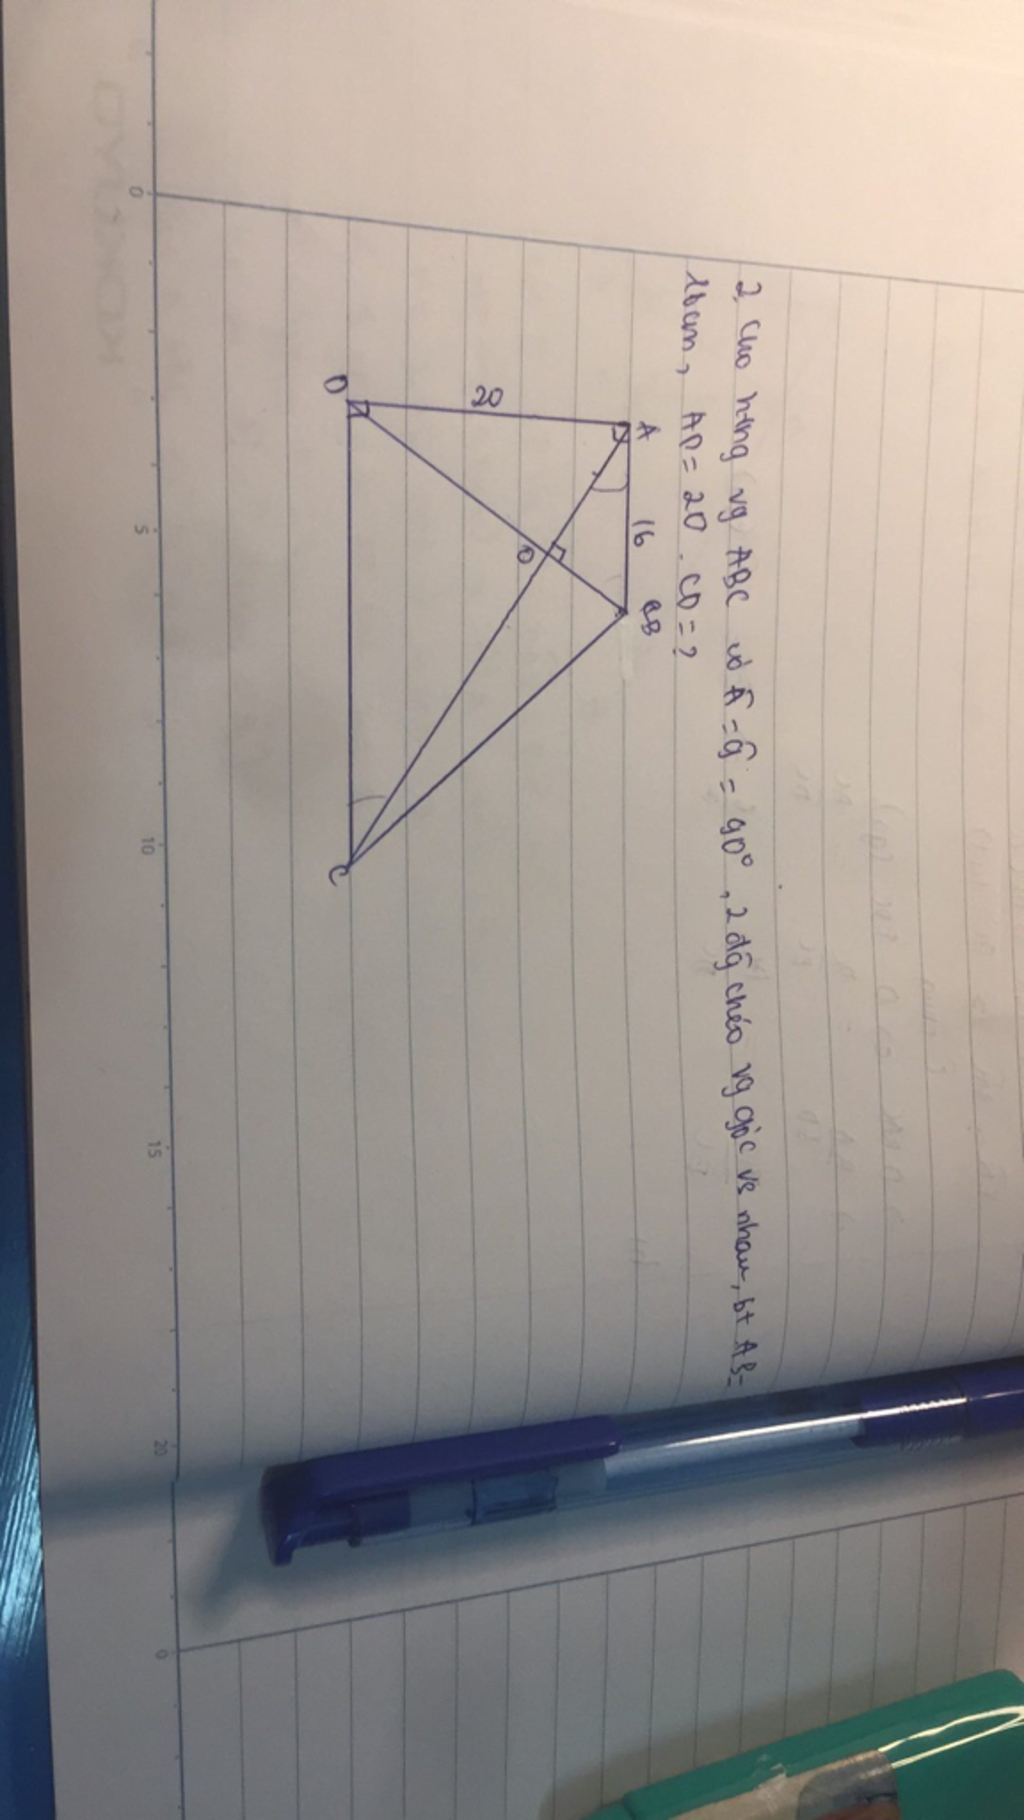 2, Cho hthg vg ABC có Â = D̂ = 90°, 2 đg chéo vg góc vs nhau, bt AB =
16cm, AD = 20. CD = ?
A
16
B
20
O
D
C
0
5
10
15
20
0